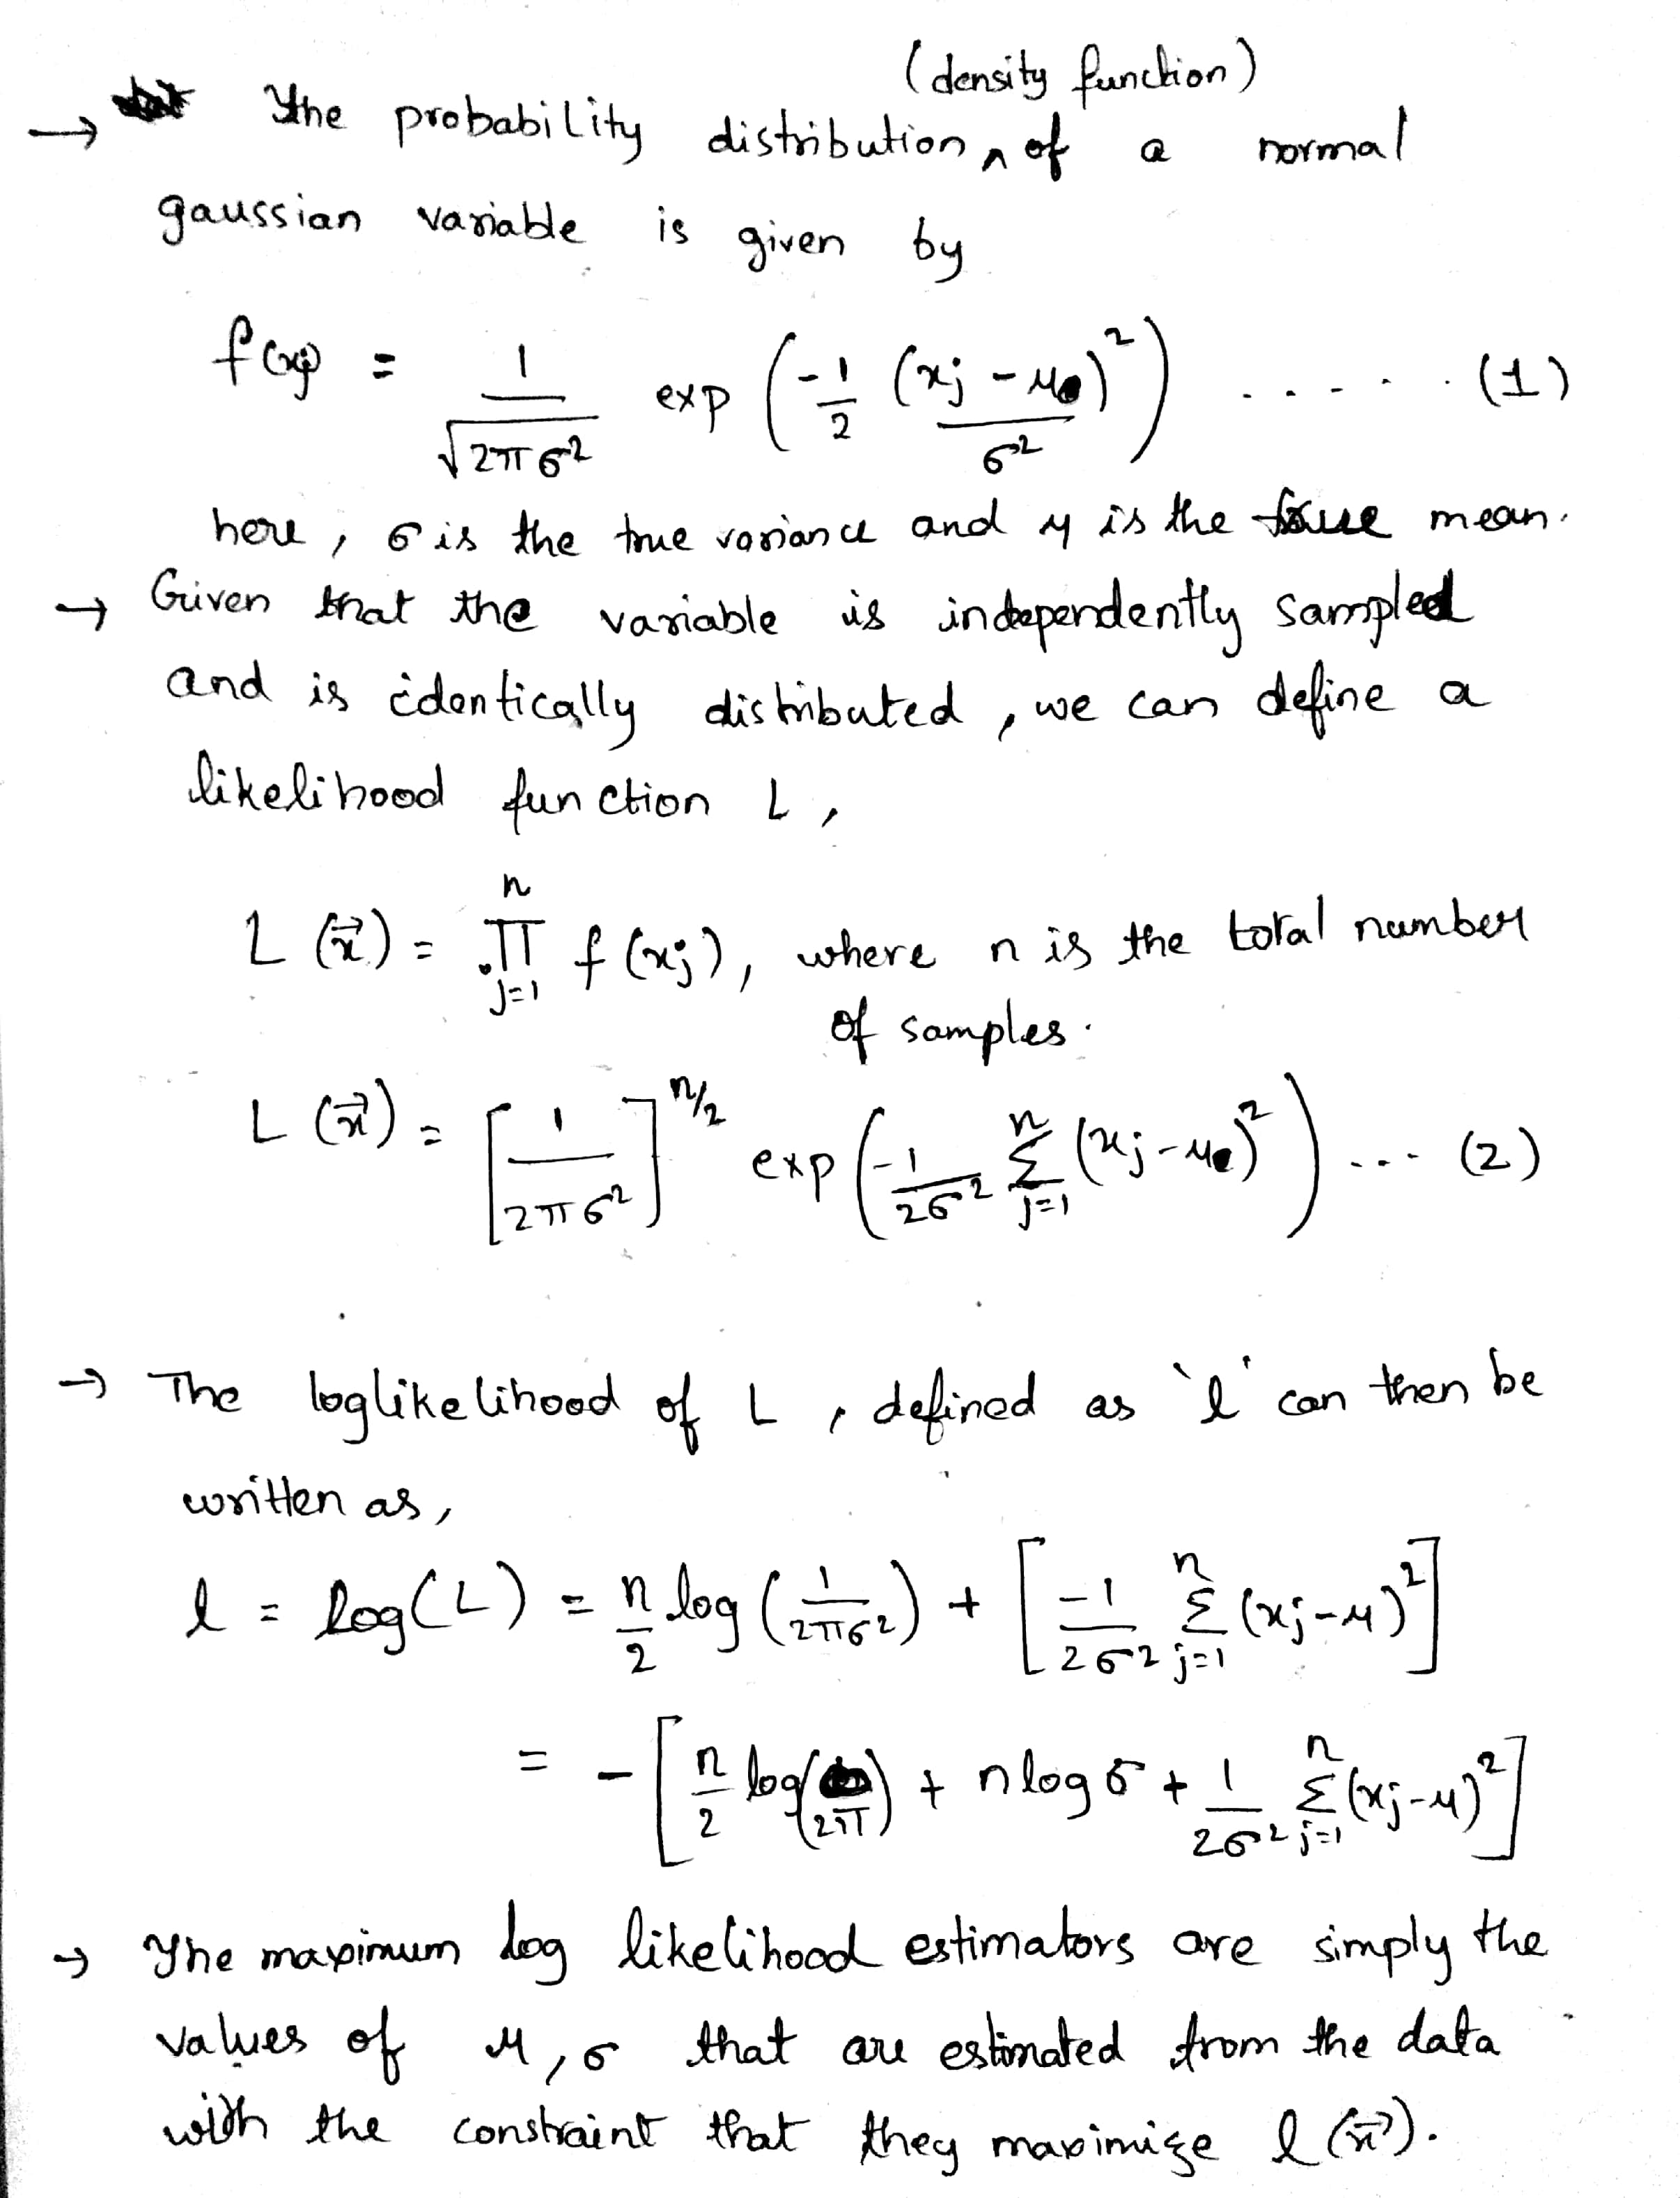 (density function)
→ The probability distribution ‸ of a normal
gaussian variable is given by
f(xj) = 1/√(2πσ²) exp (-1/2 (xj - μ)²/σ²) ..... (1)
here, σ is the true variance and μ is the true mean.
→ Given that the variable is independently sampled
and is identically distributed, we can define a
likelihood function L,
L(x⃗) = ∏_{j=1}^{n} f(xj), where n is the total number
of samples.
L(x⃗) = [1/(2πσ²)]^{n/2} exp (-1/(2σ²) Σ_{j=1}^{n} (xj - μ)²) ... (2)
→ The loglikelihood of L, defined as 'l' can then be
written as,
l = log(L) = n/2 log (1/(2πσ²)) + [-1/(2σ²) Σ_{j=1}^{n} (xj - μ)²]
= -[n/2 log(2π) + n log σ + 1/(2σ²) Σ_{j=1}^{n} (xj - μ)²]
→ The maximum log likelihood estimators are simply the
values of μ, σ that are estimated from the data
with the constraint that they maximize l(x⃗).